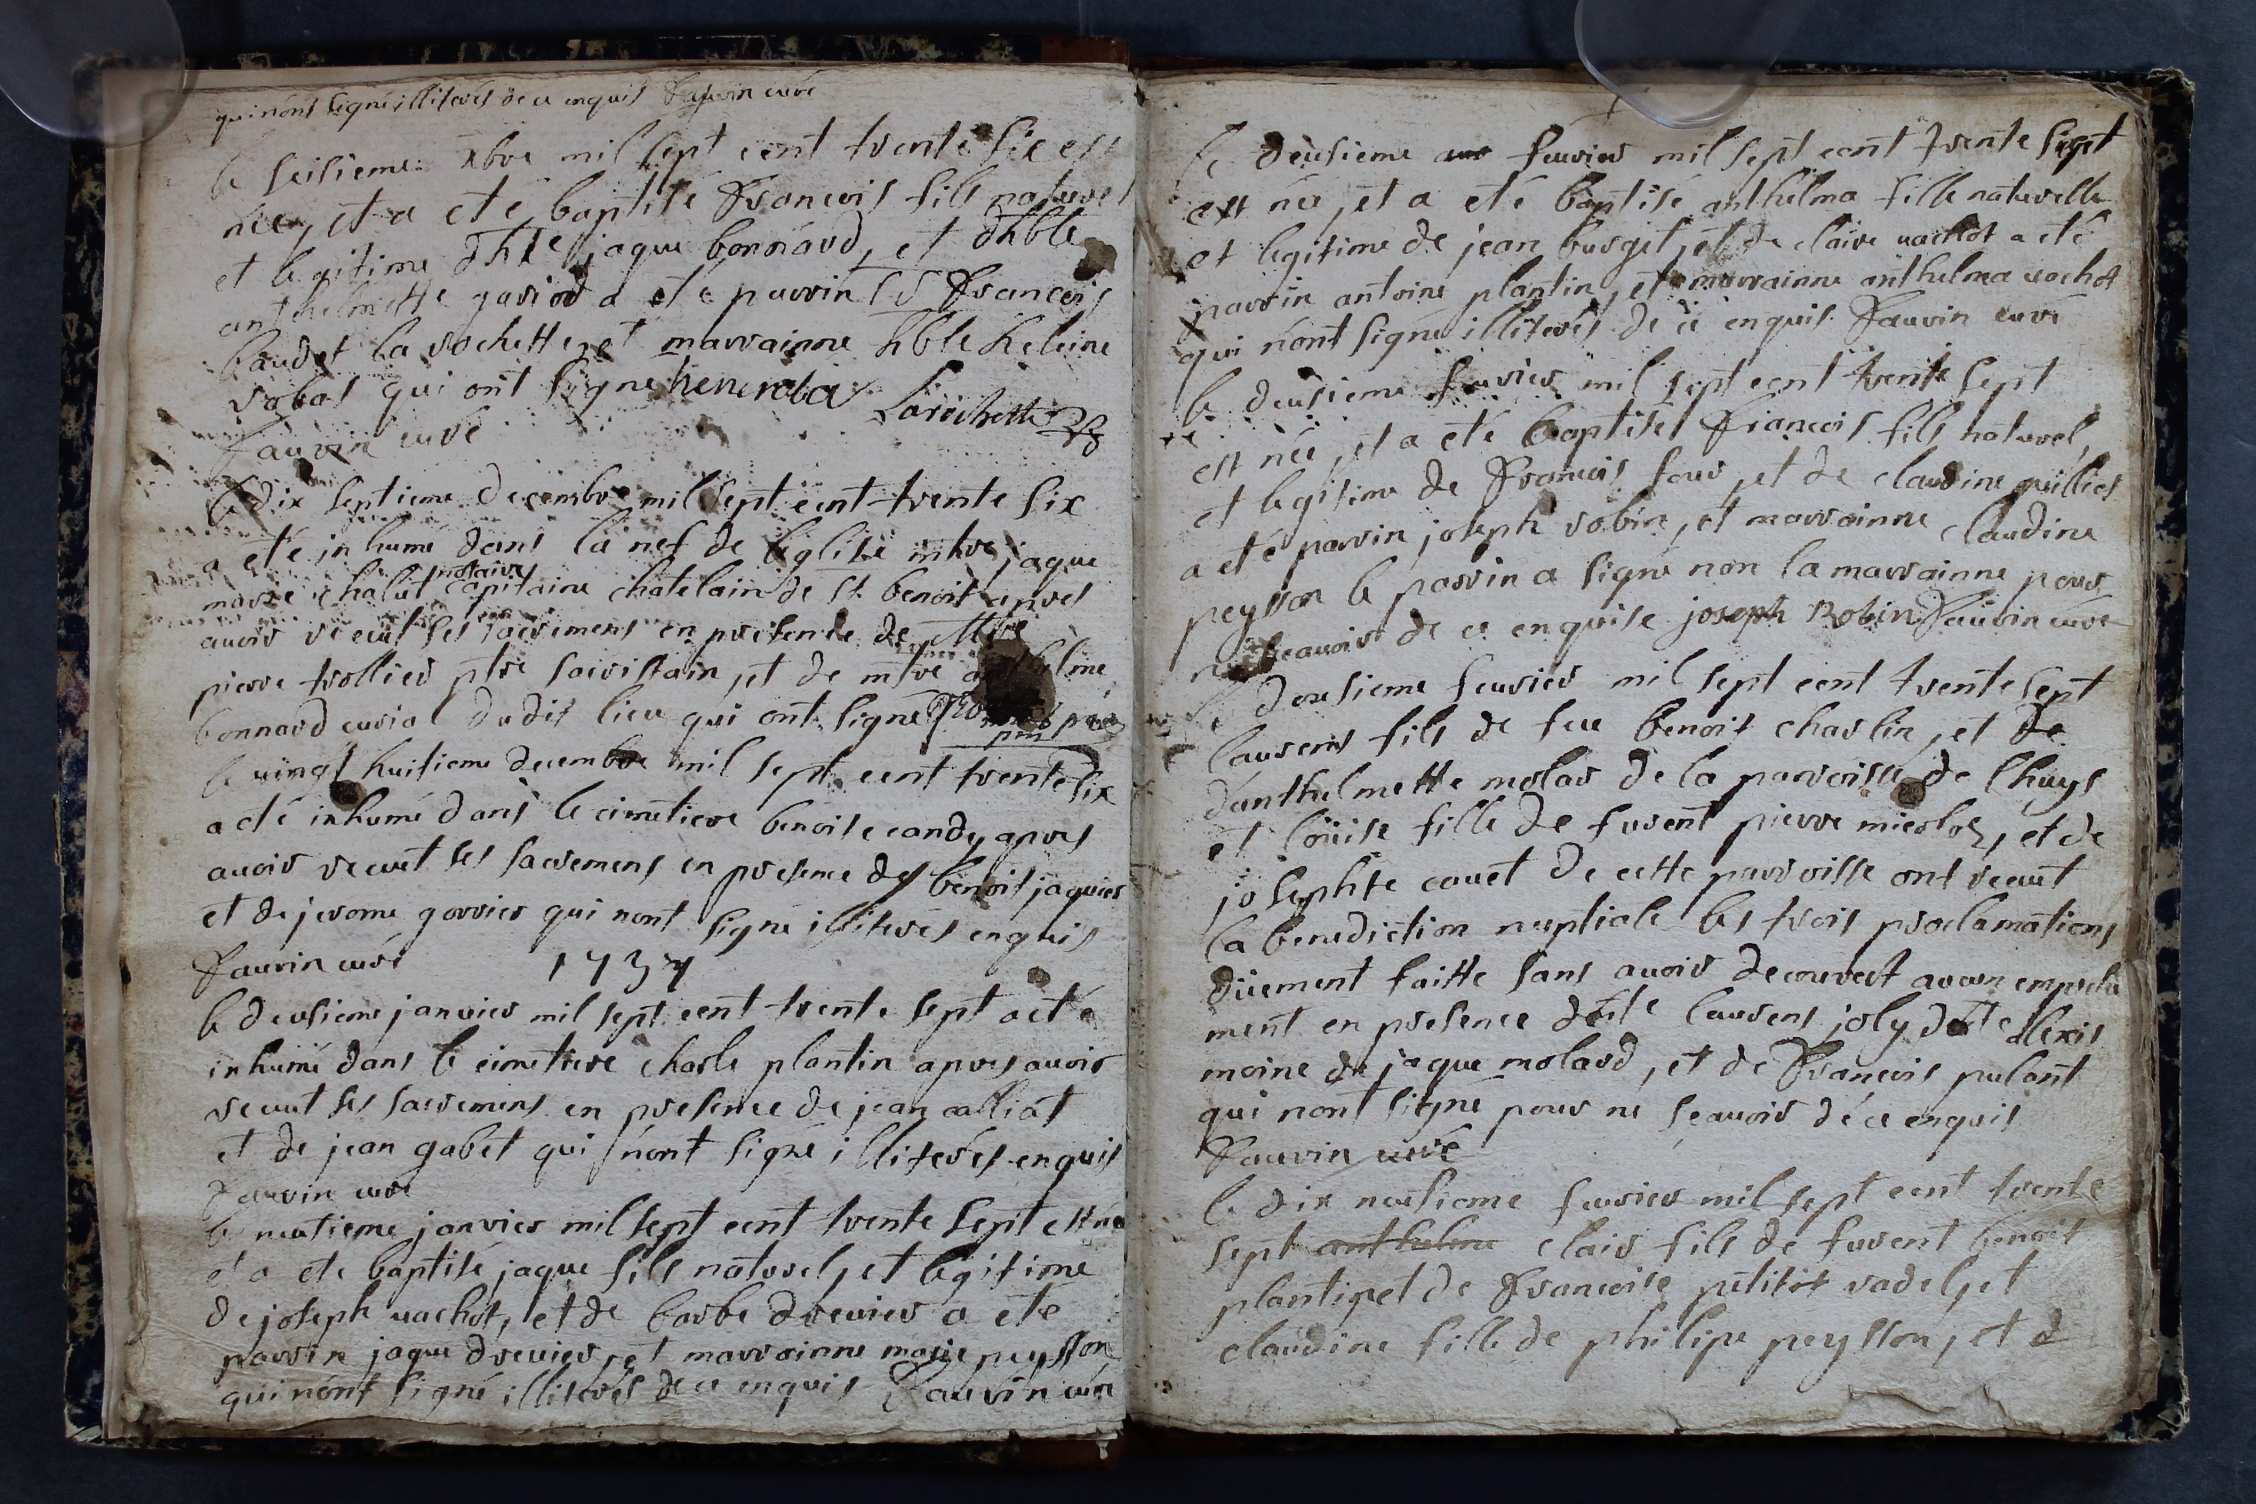 qui nont signé illiterés de ce enquis Fauvin curé
le seisieme xbre mil sept cent trente six est
née, et a eté baptisé Francois fils naturel
et legitime jaque bonnard, et
anthelmette gariod a eté parrin Sr Francois
baudet la rochette, et marrainne hble heleine
rabat qui ont signé Larochette
Fauvin curé
le dix septieme decembre mil sept cent trente six
a eté inhumé dans la nef de leglise mtre jaque
marie chalut notaire capitaine chatelain de st benoit apres
avoir receut ses sacremens en presence de Mre
pierre trollier ptre sacristain, et de mtre anthelme
bonnard curial dudit lieu qui ont signé
le vingt huitieme decembre mil sept cent trente six
a eté inhumé dans le cimetiere benoise candy apres
avoir recut ses sacremens en presence de benoit jaquier
et de jerome gorrier qui nont signé illiterés enquis
Fauvin curé 1737
le deusieme janvier mil sept cent trente sept a eté
inhumé dans le cimetiere charle plantin apres avoir
recut ses sacremens en presence de jean calliat
et de jean gabet qui nont signé illiterés enquis
Fauvin curé
le neusieme janvier mil sept cent trente sept est né
et a ete baptisé jaque fils naturel, et legitime
de joseph vachot, et de barbe drevier a eté
parrin jaque drevier, et marrainne marie peysson
qui nont signé illiterés de ce enquis Fauvin curé
le deusieme fevrier mil sept cent trente sept
est née, et a eté baptisé anthelma fille naturelle
et legitime de jean burget, et de claire vachot a eté
parrin antoine plantin, et marrainne anthelma vachot
qui nont signé illiterés de ce enquis Fauvin curé
le deusieme fevrier mil sept cent trente sept
est née, et a eté baptisé Francois fils naturel,
et legitime de Francois four, et de claudine guillios
a eté parrin joseph robin, et marrainne claudine
peysson le parrin a signé non la marrainne pour
ne sceavoir de ce enquise joseph Robin Fauvin curé
le dousieme fevrier mil sept cent trente sept
laurens fils de feu benoit charlin, et de
danthelmette molar de la parroisse de lhuys
et loüise fille de furent pierre micoloz, et de
josephte cavet de cette parroisse ont receut
la benediction nuptiale les trois proclamations
düement faitte sans avoir decouvert aucun empeche
ment en presence dhte laurens joly dhte alexis
moine de jaque molard, et de Francois pulont
qui nont signé pour ne sçavoir de ce enquis
Fauvin curé
le dix neusieme fevrier mil sept cent trente
sept anthelme clair fils de furent benoit
plantin et de Francoise petitot radel, et
claudine fille de philipe peysson, et d